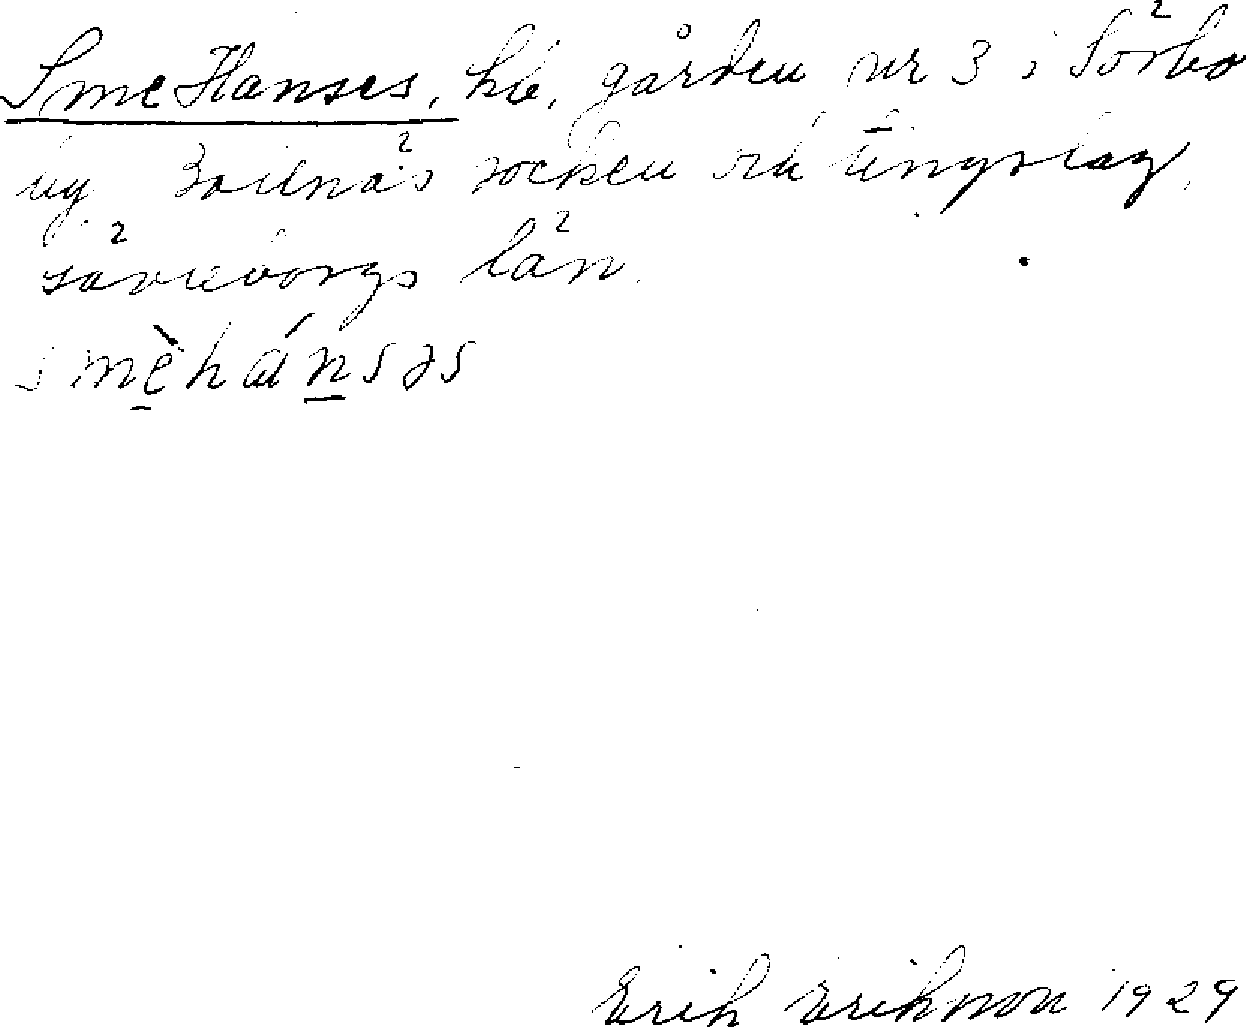 SmeHanses, kb, gården nr 3 i Sörbo
by Bollnäs socken och tingslag,
Gävleborgs län.
smèhánsəs
Erik Erikson 1929